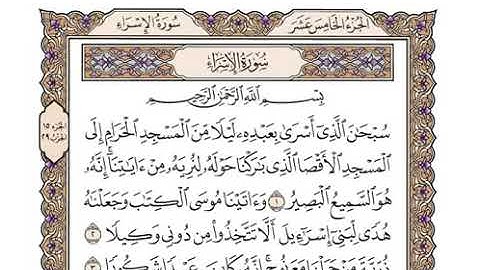 الجزء الخامس عشر
سورة الإسراء
سُورَةُ الإِسْرَاءِ
بِسْمِ اللَّهِ الرَّحْمَٰنِ الرَّحِيمِ
سُبْحَٰنَ ٱلَّذِىٓ أَسْرَىٰ بِعَبْدِهِۦ لَيْلًا مِّنَ ٱلْمَسْجِدِ ٱلْحَرَامِ إِلَى
ٱلْمَسْجِدِ ٱلْأَقْصَا ٱلَّذِى بَٰرَكْنَا حَوْلَهُۥ لِنُرِيَهُۥ مِنْ ءَايَٰتِنَآ ۚ إِنَّهُۥ
هُوَ ٱلسَّمِيعُ ٱلْبَصِيرُ ١ وَءَاتَيْنَا مُوسَى ٱلْكِتَٰبَ وَجَعَلْنَٰهُ
هُدًى لِّبَنِىٓ إِسْرَٰٓءِيلَ أَلَّا تَتَّخِذُوا۟ مِن دُونِى وَكِيلًا ٢
ذُرِّيَّةَ مَنْ حَمَلْنَا مَعَ نُوحٍ ۚ إِنَّهُۥ كَانَ عَبْدًا شَكُورًا ٣
الجزء ١٥
الحزب ٢٩